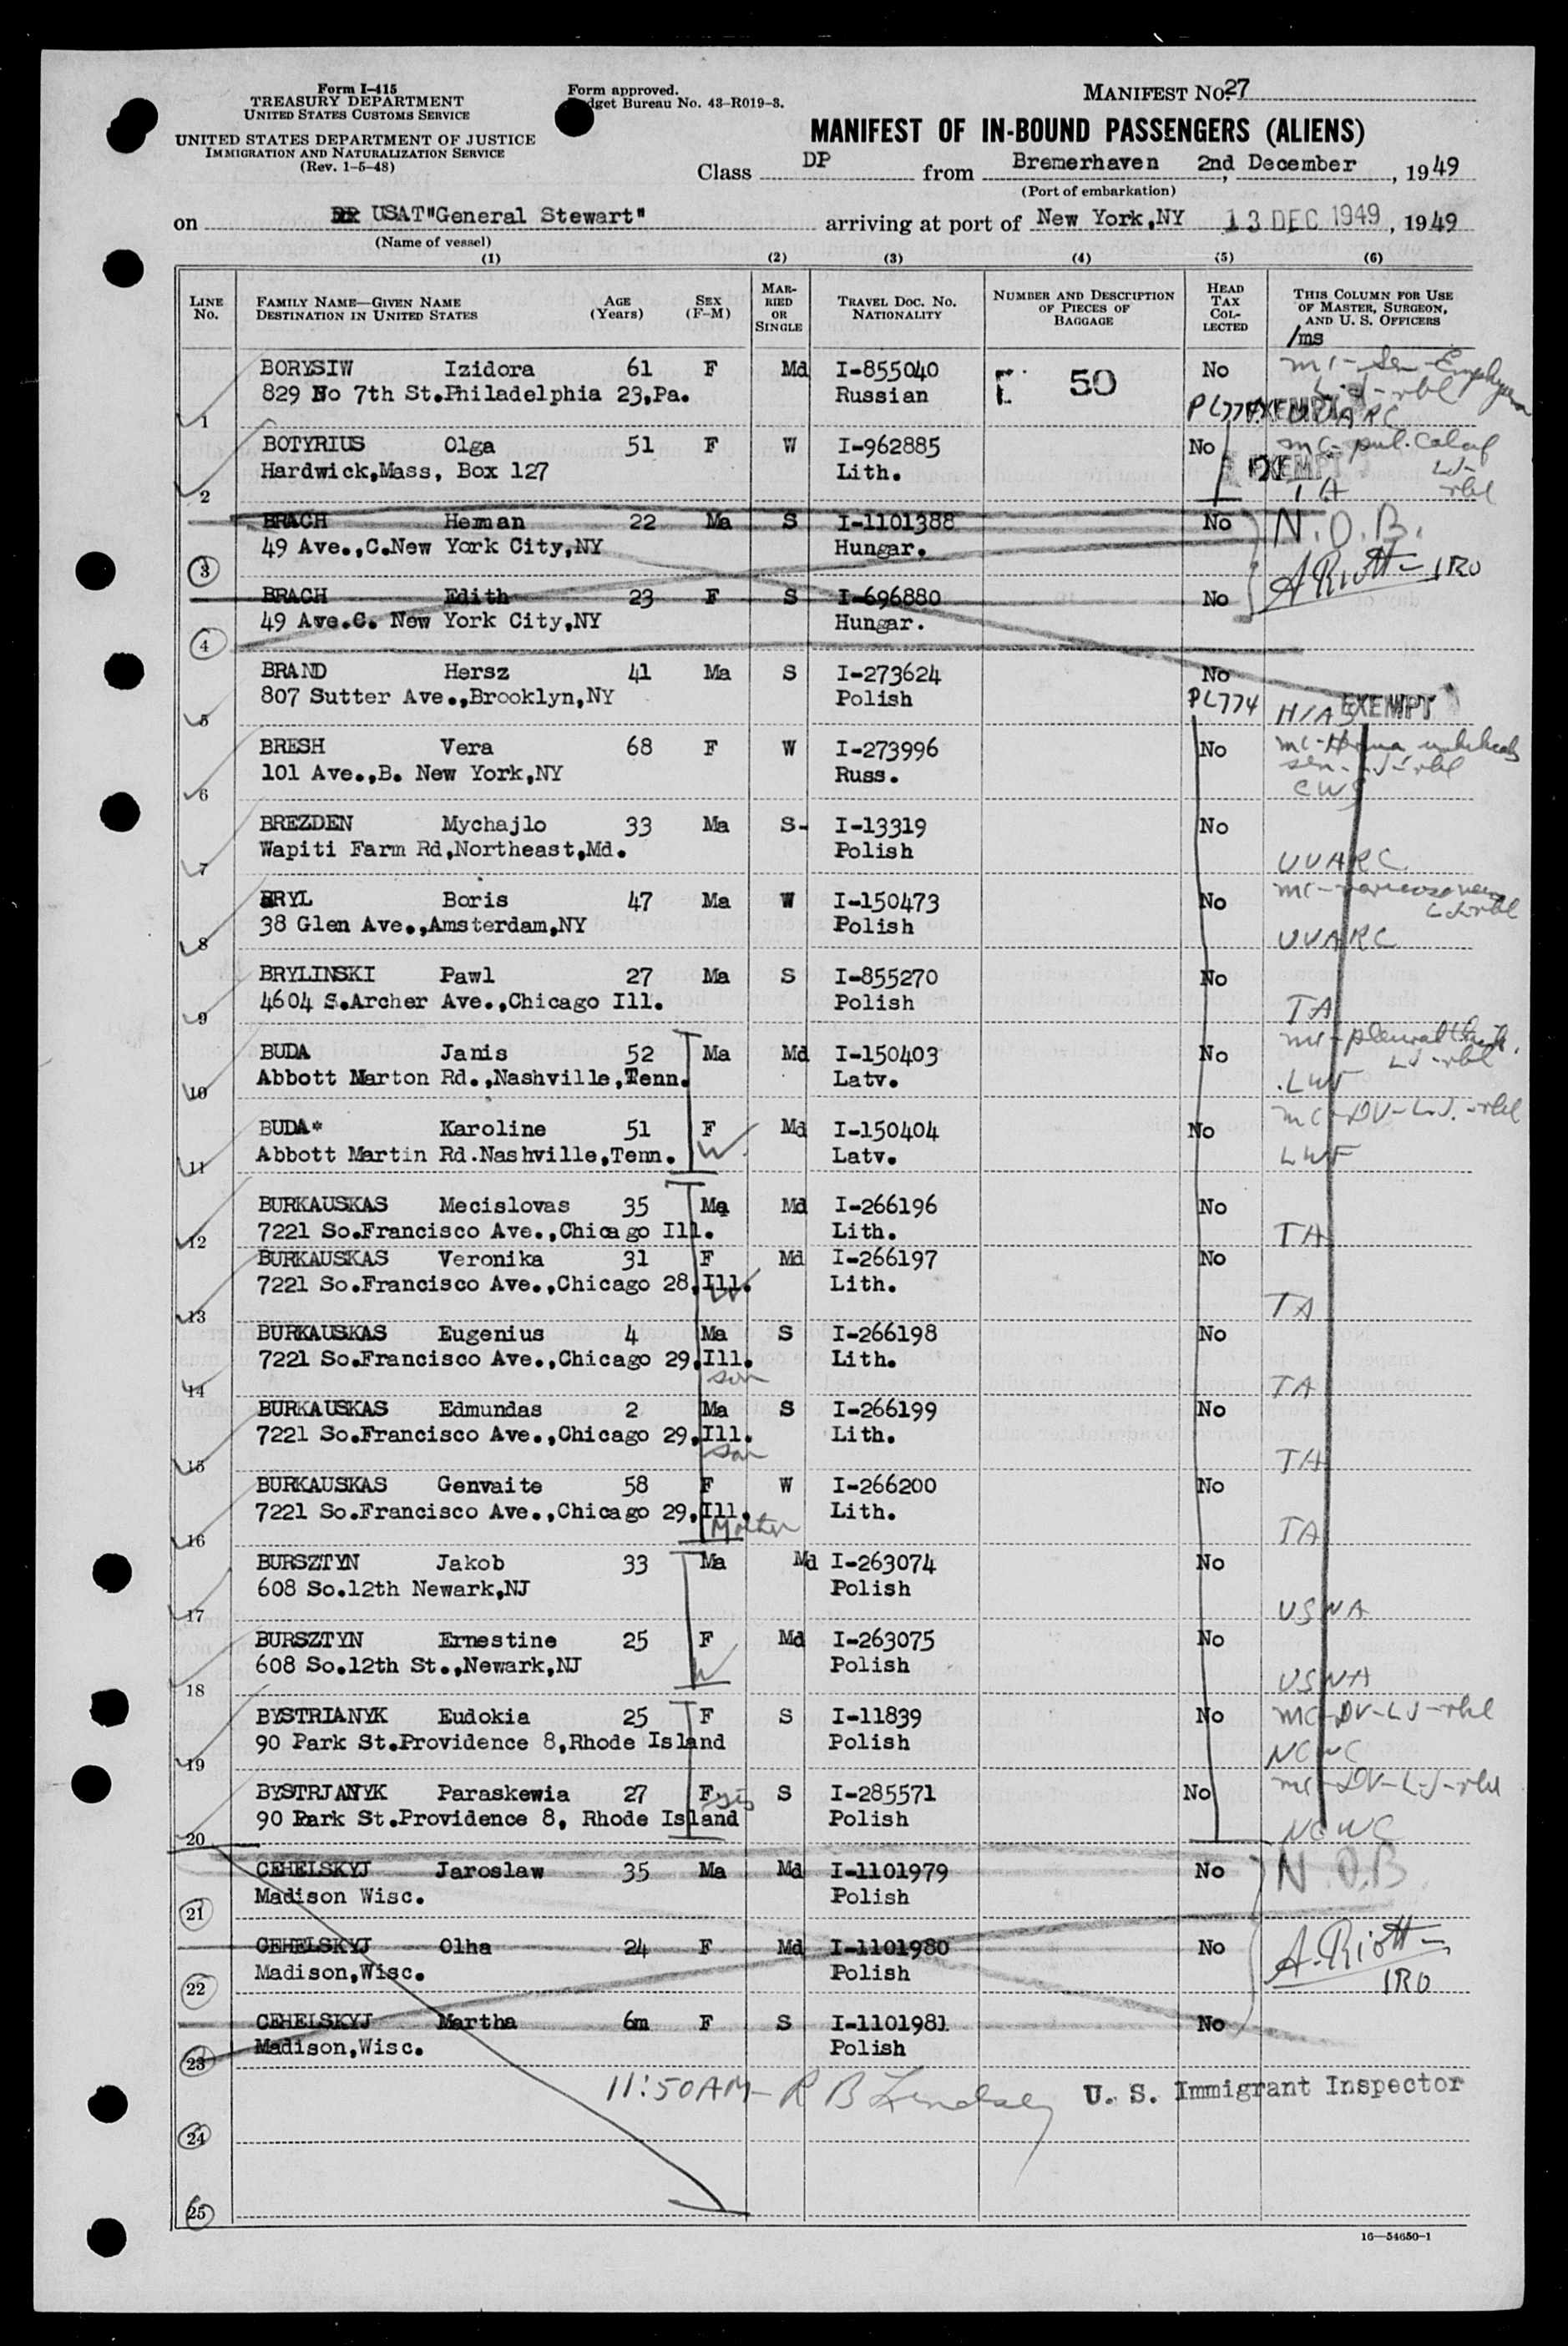 Form I-415
TREASURY DEPARTMENT
UNITED STATES CUSTOMS SERVICE
UNITED STATES DEPARTMENT OF JUSTICE
IMMIGRATION AND NATURALIZATION SERVICE
(Rev. 1-5-48)
Form approved.
Budget Bureau No. 43-R019-3.
MANIFEST NO. 27
MANIFEST OF IN-BOUND PASSENGERS (ALIENS)
Class DP from Bremerhaven 2nd, December, 1949
(Port of embarkation)
on USAT"General Stewart" arriving at port of New York,NY 13 DEC 1949, 1949
(Name of vessel)
(1) (2) (3) (4) (5) (6)
LINE NO. FAMILY NAME—GIVEN NAME DESTINATION IN UNITED STATES AGE (YEARS) SEX (F-M) MARRIED OR SINGLE TRAVEL DOC. NO. NATIONALITY NUMBER AND DESCRIPTION OF PIECES OF BAGGAGE HEAD TAX COLLECTED THIS COLUMN FOR USE OF MASTER, SURGEON, AND U. S. OFFICERS
/ms
BORYSIW Izidora 61 F Md I-855040 50 No
829 No 7th St.Philadelphia 23,Pa. Russian
1 PL774 EXEMPT UUARC
BOTYRIUS Olga 51 F W I-962885 No
Hardwick,Mass, Box 127 Lith. EXEMPT
2 TA
BRACH Heman 22 Ma S I-1101388 No N.O.B.
49 Ave.,C.New York City,NY Hungar.
3 A Riott- IRO
BRACH Edith 23 F S I-696880 No
49 Ave.C. New York City,NY Hungar.
4
BRAND Hersz 41 Ma S I-273624 No
807 Sutter Ave.,Brooklyn,NY Polish PL774
5 HIAS EXEMPT
BRESH Vera 68 F W I-273996 No
101 Ave.,B. New York,NY Russ.
6 CWS
BREZDEN Mychajlo 33 Ma S- I-13319 No
Wapiti Farm Rd,Northeast,Md. Polish
7 UUARC
BRYL Boris 47 Ma W I-150473 No
38 Glen Ave.,Amsterdam,NY Polish
8 UUARC
BRYLINSKI Pawl 27 Ma S I-855270 No
4604 S.Archer Ave.,Chicago Ill. Polish
9 TA
BUDA Janis 52 Ma Md I-150403 No
Abbott Marton Rd.,Nashville,Tenn. Latv.
10 LWF
BUDA* Karoline 51 F Md I-150404 No mc-DV-L.J.-rbl
Abbott Martin Rd.Nashville,Tenn. W Latv.
11 LWF
BURKAUSKAS Mecislovas 35 Ma Md I-266196 No
7221 So.Francisco Ave.,Chicago Ill. Lith.
12 TA
BURKAUSKAS Veronika 31 F Md I-266197 No
7221 So.Francisco Ave.,Chicago 28,Ill. W Lith.
13 TA
BURKAUSKAS Eugenius 4 Ma S I-266198 No
7221 So.Francisco Ave.,Chicago 29,Ill. Lith.
14 son TA
BURKAUSKAS Edmundas 2 Ma S I-266199 No
7221 So.Francisco Ave.,Chicago 29,Ill. Lith.
15 son TA
BURKAUSKAS Genvaite 58 F W I-266200 No
7221 So.Francisco Ave.,Chicago 29,Ill. Lith.
16 Mother TA
BURSZTYN Jakob 33 Ma Md I-263074 No
608 So.12th Newark,NJ Polish
17 USNA
BURSZTYN Ernestine 25 F Md I-263075 No
608 So.12th St.,Newark,NJ W Polish
18 USNA
BYSTRIANYK Eudokia 25 F S I-11839 No mc-DV-LJ-rbl
90 Park St.Providence 8,Rhode Island Polish
19 NCWC
BYSTRJANYK Paraskewia 27 F sis S I-285571 No mc-DV-L-J-rbl
90 Park St.Providence 8, Rhode Island Polish
20 NCWC
CEHELSKYJ Jaroslaw 35 Ma Md I-1101979 No N.O.B
Madison Wisc. Polish
21
CEHELSKYJ Olha 24 F Md I-1101980 No A.Riott-
Madison,Wisc. Polish IRO
22
CEHELSKYJ Martha 6m F S I-1101981 No
Madison,Wisc. Polish
23
11:50AM- R B Lindsey U. S. Immigrant Inspector
24
25
16—54650-1